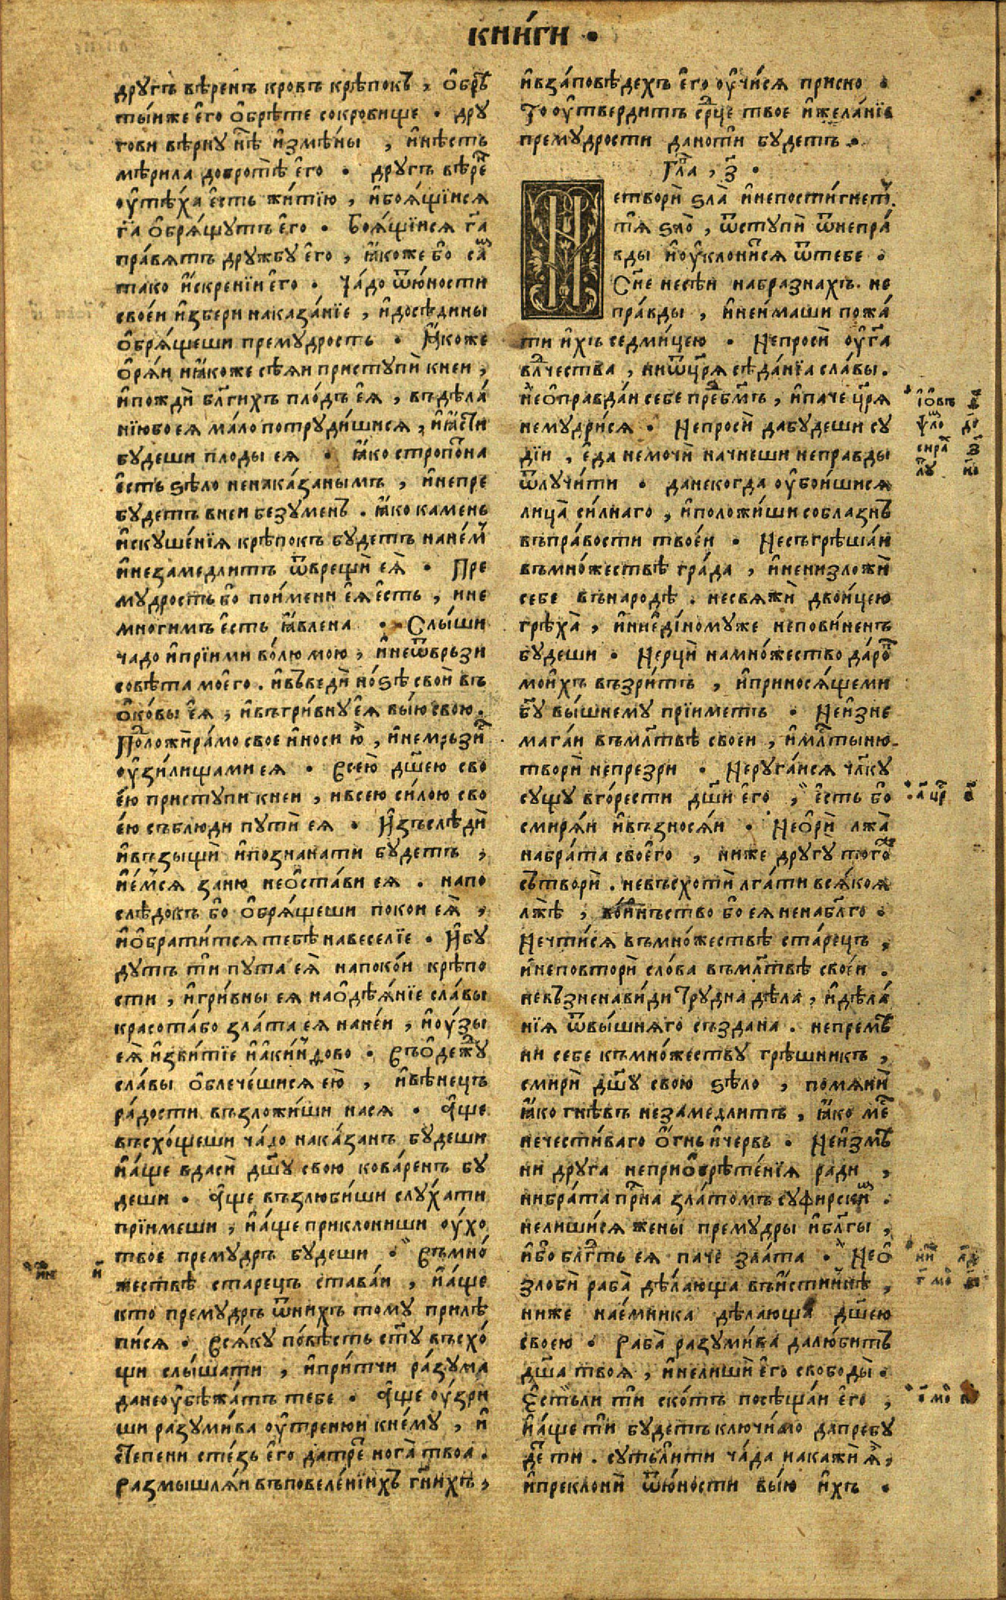 книги
другъ вѣренъ кровъ крѣпокъ, обрѣ
тыйже его обрѣте сокровище. дру
гови вѣрну нѣ измѣны, и нѣсть
мѣрила добротѣ его. другъ вѣре
утѣха есть житїю, и боящїися
га обрящутъ его. Боящїися га
правятъ дружбу его, якоже бо са
тако искренїи его. Чадо ѿюности
своеи избери наказанїе, и доседины
обрящеши премудрость. Якоже
оряи и якоже сѣяи приступи кнеи,
и пожди благихъ плодъ ея, въдѣла
нїюбо ея мало потрудишися, и ясти
будеши плоды ея. Яко стропотна
есть ѕѣло ненаказанымъ, и непре
будетъ внеи безуменъ. яко камень
искушенїя крѣпокъ будетъ нанемъ
и незамедлитъ ѿврещи ея. Пре
мудрость бо поимени ея есть, и не
многимъ есть явлена. Слыши
чадо и прїими волю мою, и неѿврьзи
совѣта моего. и въведи ноѕѣ свои въ
оковы ея, и въгривну ея выю свою.
Положи рамо свое и носи ю, и немрьзи
узилищами ея. Всею дшею сво
ею приступи кнеи, и всею силою сво
ею съблюди пути ея. Изъслѣди
и възыщи и познанати будетъ,
и емся заню неостави ея. напо
слѣдокъ бо обрящеши покои ея,
и обратится тебѣ навеселїе. И бу
дутъ ти пута ея напокои крѣпо
сти, и гривны ея наодѣянїе славы
красотабо злата ея нанеи, и узы
ея извитїе иакинѳово. Въодежду
славы облечешися ею, и вѣнецъ
радости възложиши нася. Аще
въсхощеши чадо наказанъ будеши
и аще вдаси дшу свою коваренъ бу
деши. Аще възлюбиши слухати
прїимеши, и аще приклониши ухо
твое премудръ будеши. Въмно
жествѣ старецъ ставаи, и аще
кто премудръ ѿнихъ тому прилѣ
пися. Всяку повѣсть сту въсхо
щи слышати, и притчи разума
данеоубѣжатъ тебе. Аще узри
ши разумива утренюи кнему, и
степени стезь его датре нога твоа.
Размышляи въповеленїихъ гнихъ,
и взаповѣдехъ его учися присно.
То утвердитъ срце твое и желанїе
премудрости даноти будетъ.
Гла, з.
Нетвори ѕла и непостигнет
тя ѕло, ѿступи ѿнепра
вды и уклонится ѿтебе.
Сне несѣи набразнахъ не
правды, и неимаши пожа
ти ихъ седмицею. Непроси уга
влчества, ниѿцря сѣданїа славы.
Неоправдаи себе предбмъ, и паче цря
немудрися. Непроси дабудеши су
дїи, еда немочи начнеши неправды
ѿлучити. данекогда убоишися
лица силнаго, и положиши соблазнъ
въправости твоеи. Несъгрѣшаи
въмножествѣ града, и ненизложи
себе внародѣ. несвяжи двоицею
грѣха, и ниединомуже неповиненъ
будеши. Нерци намножество даро
моихъ възритъ, и приносящеми
бгу вышнему прїиметь. Неизне
магаи въмлтвѣ своеи, и млтыню
твори непрезри. Неругаися члку
сущу вгорести дши его, есть бо
смиряи и възносяи. Неори лжа
набрата своего, ниже другу тогоже
сътвори. невъсхоти лгати всякоя
лжѣ, бо ея ненаблго.
Нечтися въмножествѣ старецъ,
и неповтори слова въмлтвѣ своеи.
невъзненавиди трудна дѣла, и дѣла
нїя ѿвышняго създана. непремѣ
ни себе къмножеству грѣшникъ,
смири дшу свою ѕѣло, помяни
яко гнѣвъ незамедлитъ, яко ме
нечестиваго огнь и червь. Неизмѣ
ни друга неприобрѣтенїя ради,
нибрата прна златомъ суфирски.
нелишися жены премудры и блгы,
ибо блгть ея паче злата. Нео
злоби раба дѣлающа въистиннѣ,
ниже наемника дѣлающа дшею
своею. Раба разумива далюбитъ
дша твоя, и нелиши его свободы.
Естьли ти скотъ посѣщаи его,
и аще ти будетъ ключимо дапребу
де ти. сутьлити чада накажи я,
и преклони ѿюности выю ихъ.